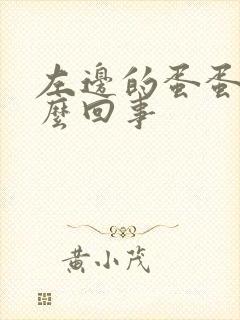 左邊的蛋蛋
麼回事
黃小茂